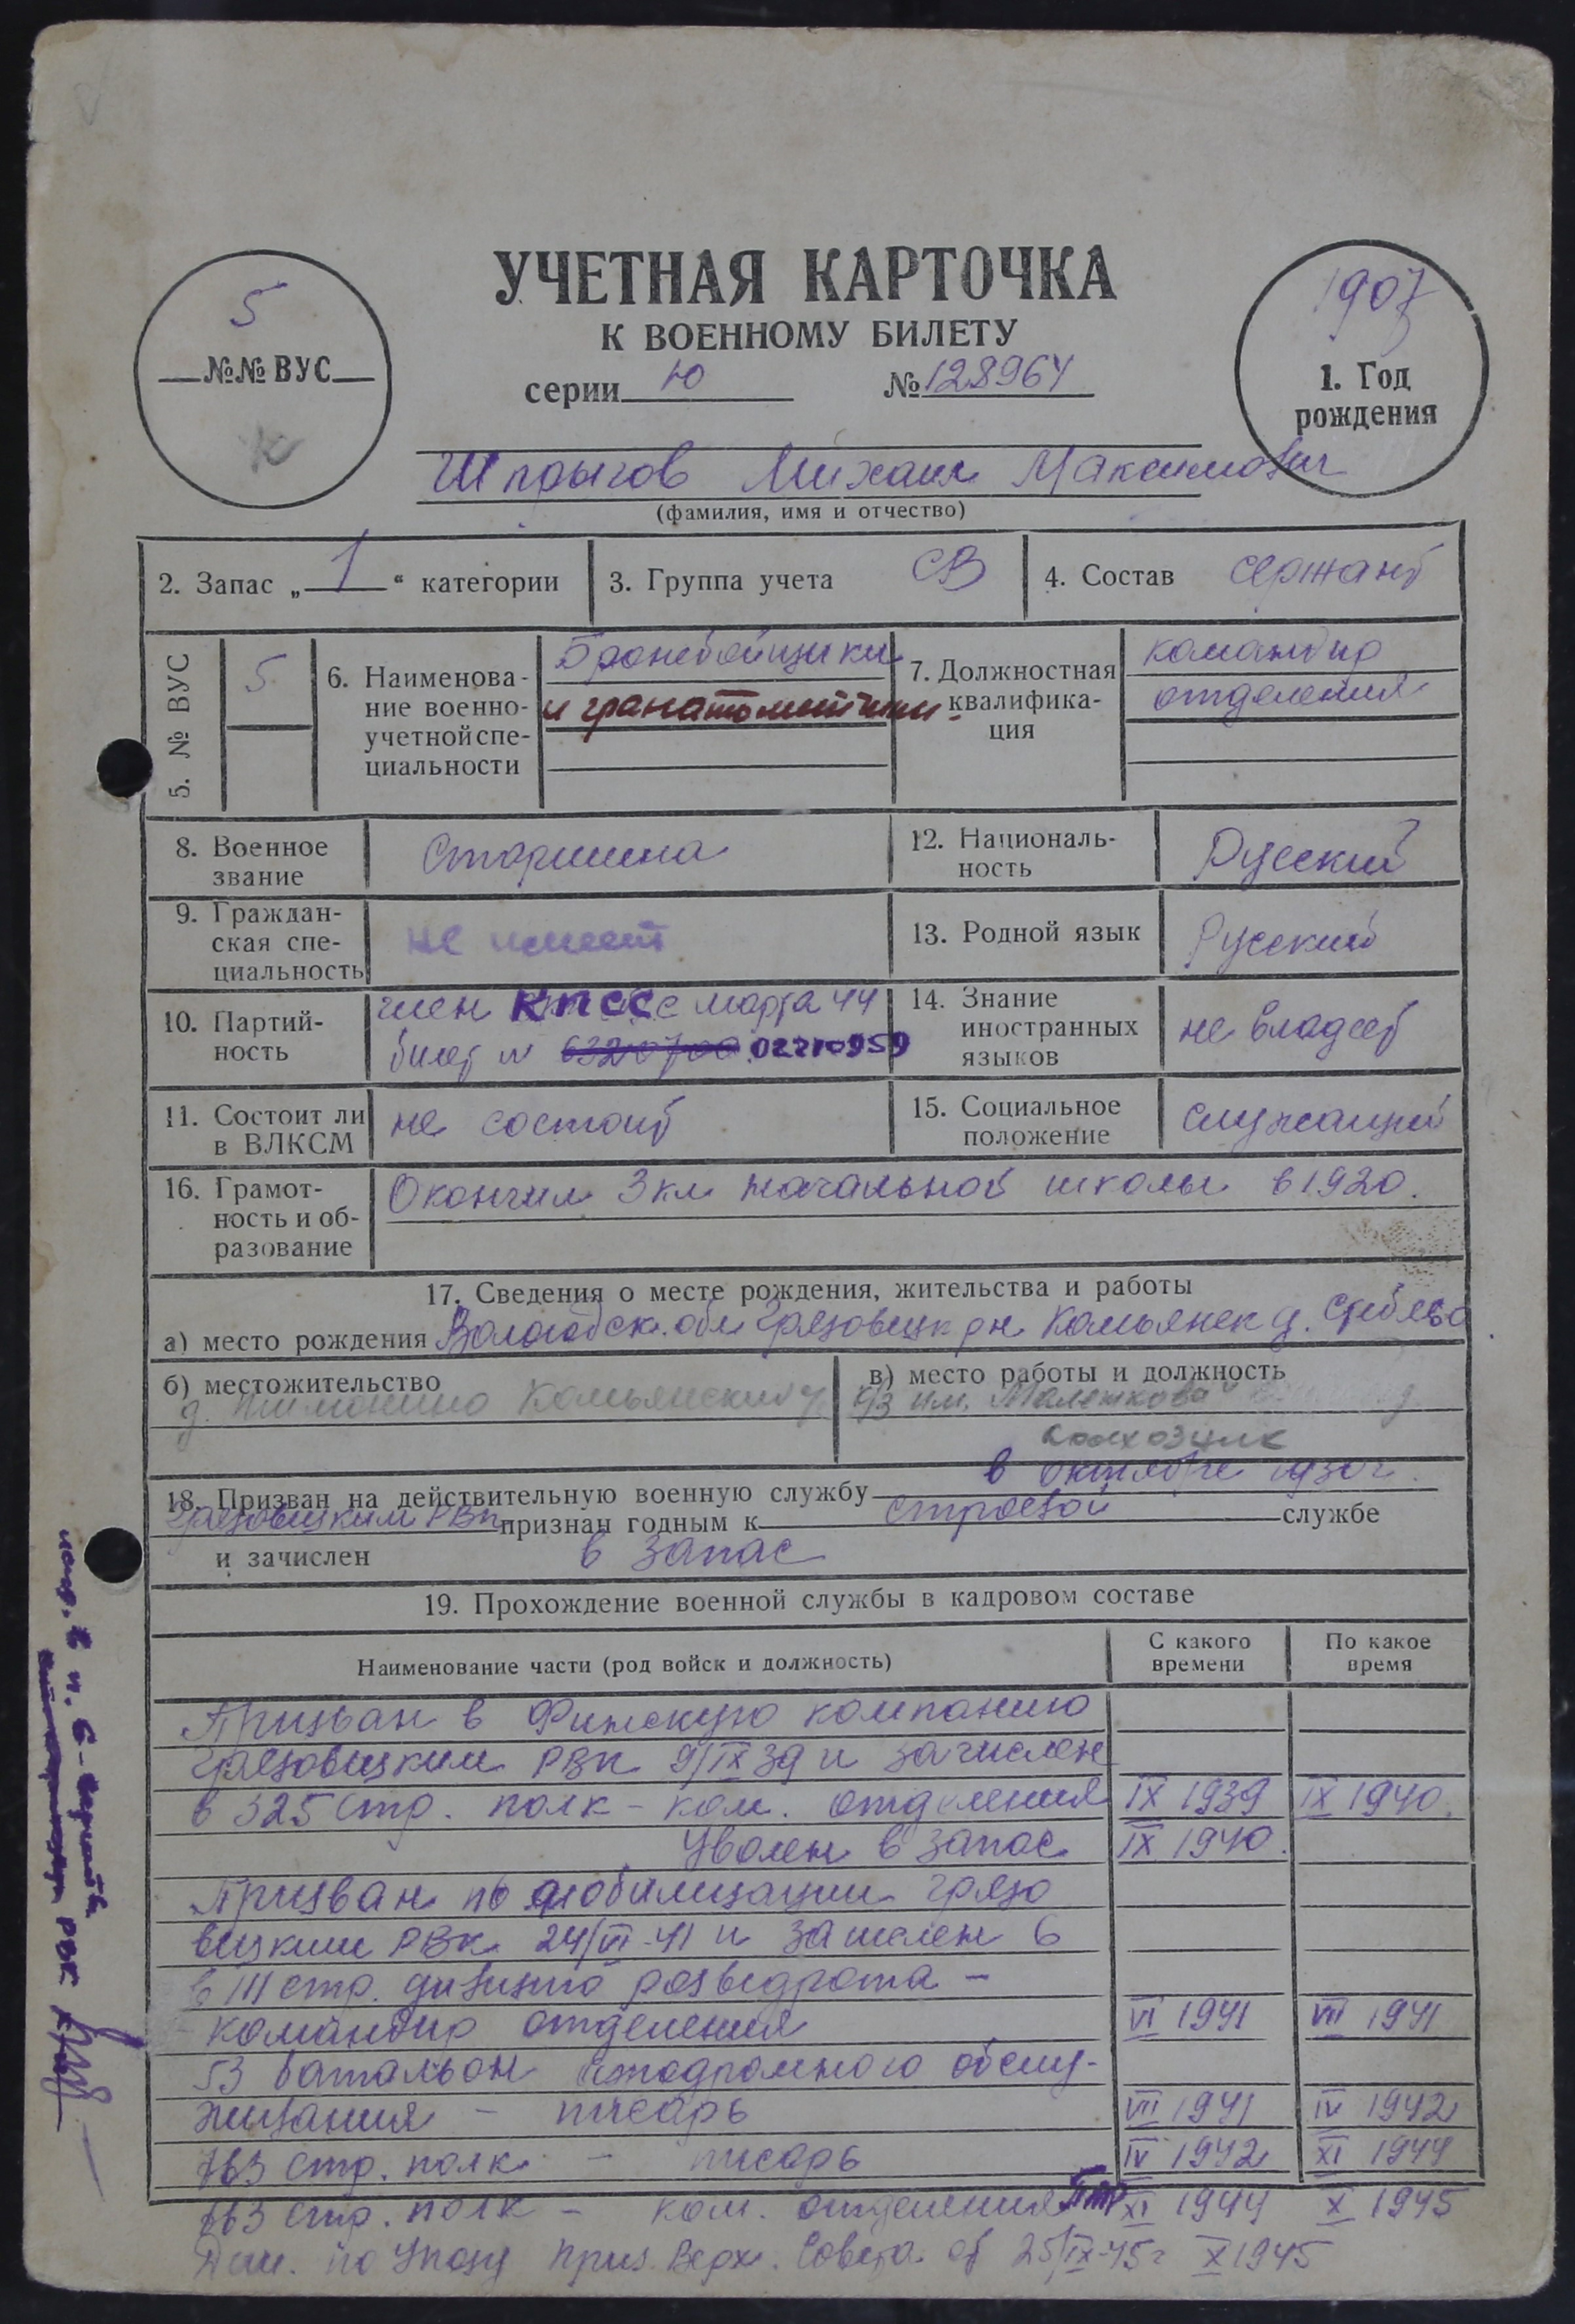 УЧЕТНАЯ КАРТОЧКА
К ВОЕННОМУ БИЛЕТУ
серии Ю № 128964
5
№№ ВУС
К
1907
1. Год
рождения
Шпрыгов Михаил Максимович
(фамилия, имя и отчество)
2. Запас „ 1 “ категории
3. Группа учета СВ
4. Состав сержант
5. № ВУС
5
6. Наименова-
ние военно-
учетной спе-
циальности
Бронебойщики
и гранатометчики.
7. Должностная
квалифика-
ция
командир
отделения
8. Военное
звание
Старшина
12. Националь-
ность
Русский
9. Граждан-
ская спе-
циальность
не имеет
13. Родной язык
Русский
10. Партий-
ность
член КПСС с марта 44
билет № 6320700 02210959
14. Знание
иностранных
языков
не владеет
11. Состоит ли
в ВЛКСМ
не состоит
15. Социальное
положение
служащий
16. Грамот-
ность и об-
разование
Окончил 3 кл начальной школы в 1920.
17. Сведения о месте рождения, жительства и работы
а) место рождения Вологодск. обл Грязовецк рн Комьянск д.
б) местожительство
д. Комьянский
в) место работы и должность
к/з им. Маленкова
колхозник
18. Призван на действительную военную службу в октябре 1930г.
Грязовецким РВК признан годным к строевой службе
и зачислен в запас
19. Прохождение военной службы в кадровом составе
Наименование части (род войск и должность)
С какого
времени
По какое
время
Призван в Финскую компанию
Грязовецким РВК 9/IX 39 и зачислен
в 325 стр. полк - ком. отделения IX 1939 IX 1940.
Уволен в запас IX 1940.
Призван по мобилизации Грязо
вецким РВК 24/VI-41 и зачислен в
в 111 стр. дивизию разведрота -
командир отделения VI 1941 VII 1941
53 батальон аэродромного обслу-
живания - писарь VII 1941 IV 1942
763 стр. полк - писарь IV 1942 XI 1944
763 стр. полк - ком. отделения ПТР XI 1944 X 1945
Дем. по Указу През. Верх. Совета от 25/IX-45г X 1945